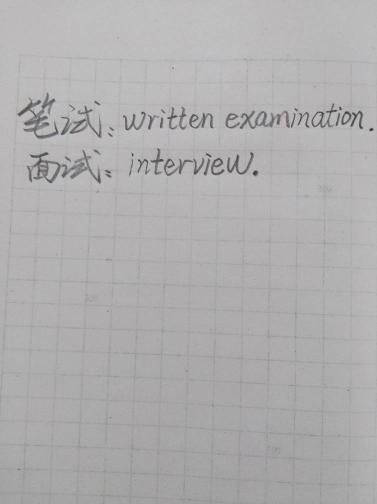 笔试: written examination.
面试: interview.